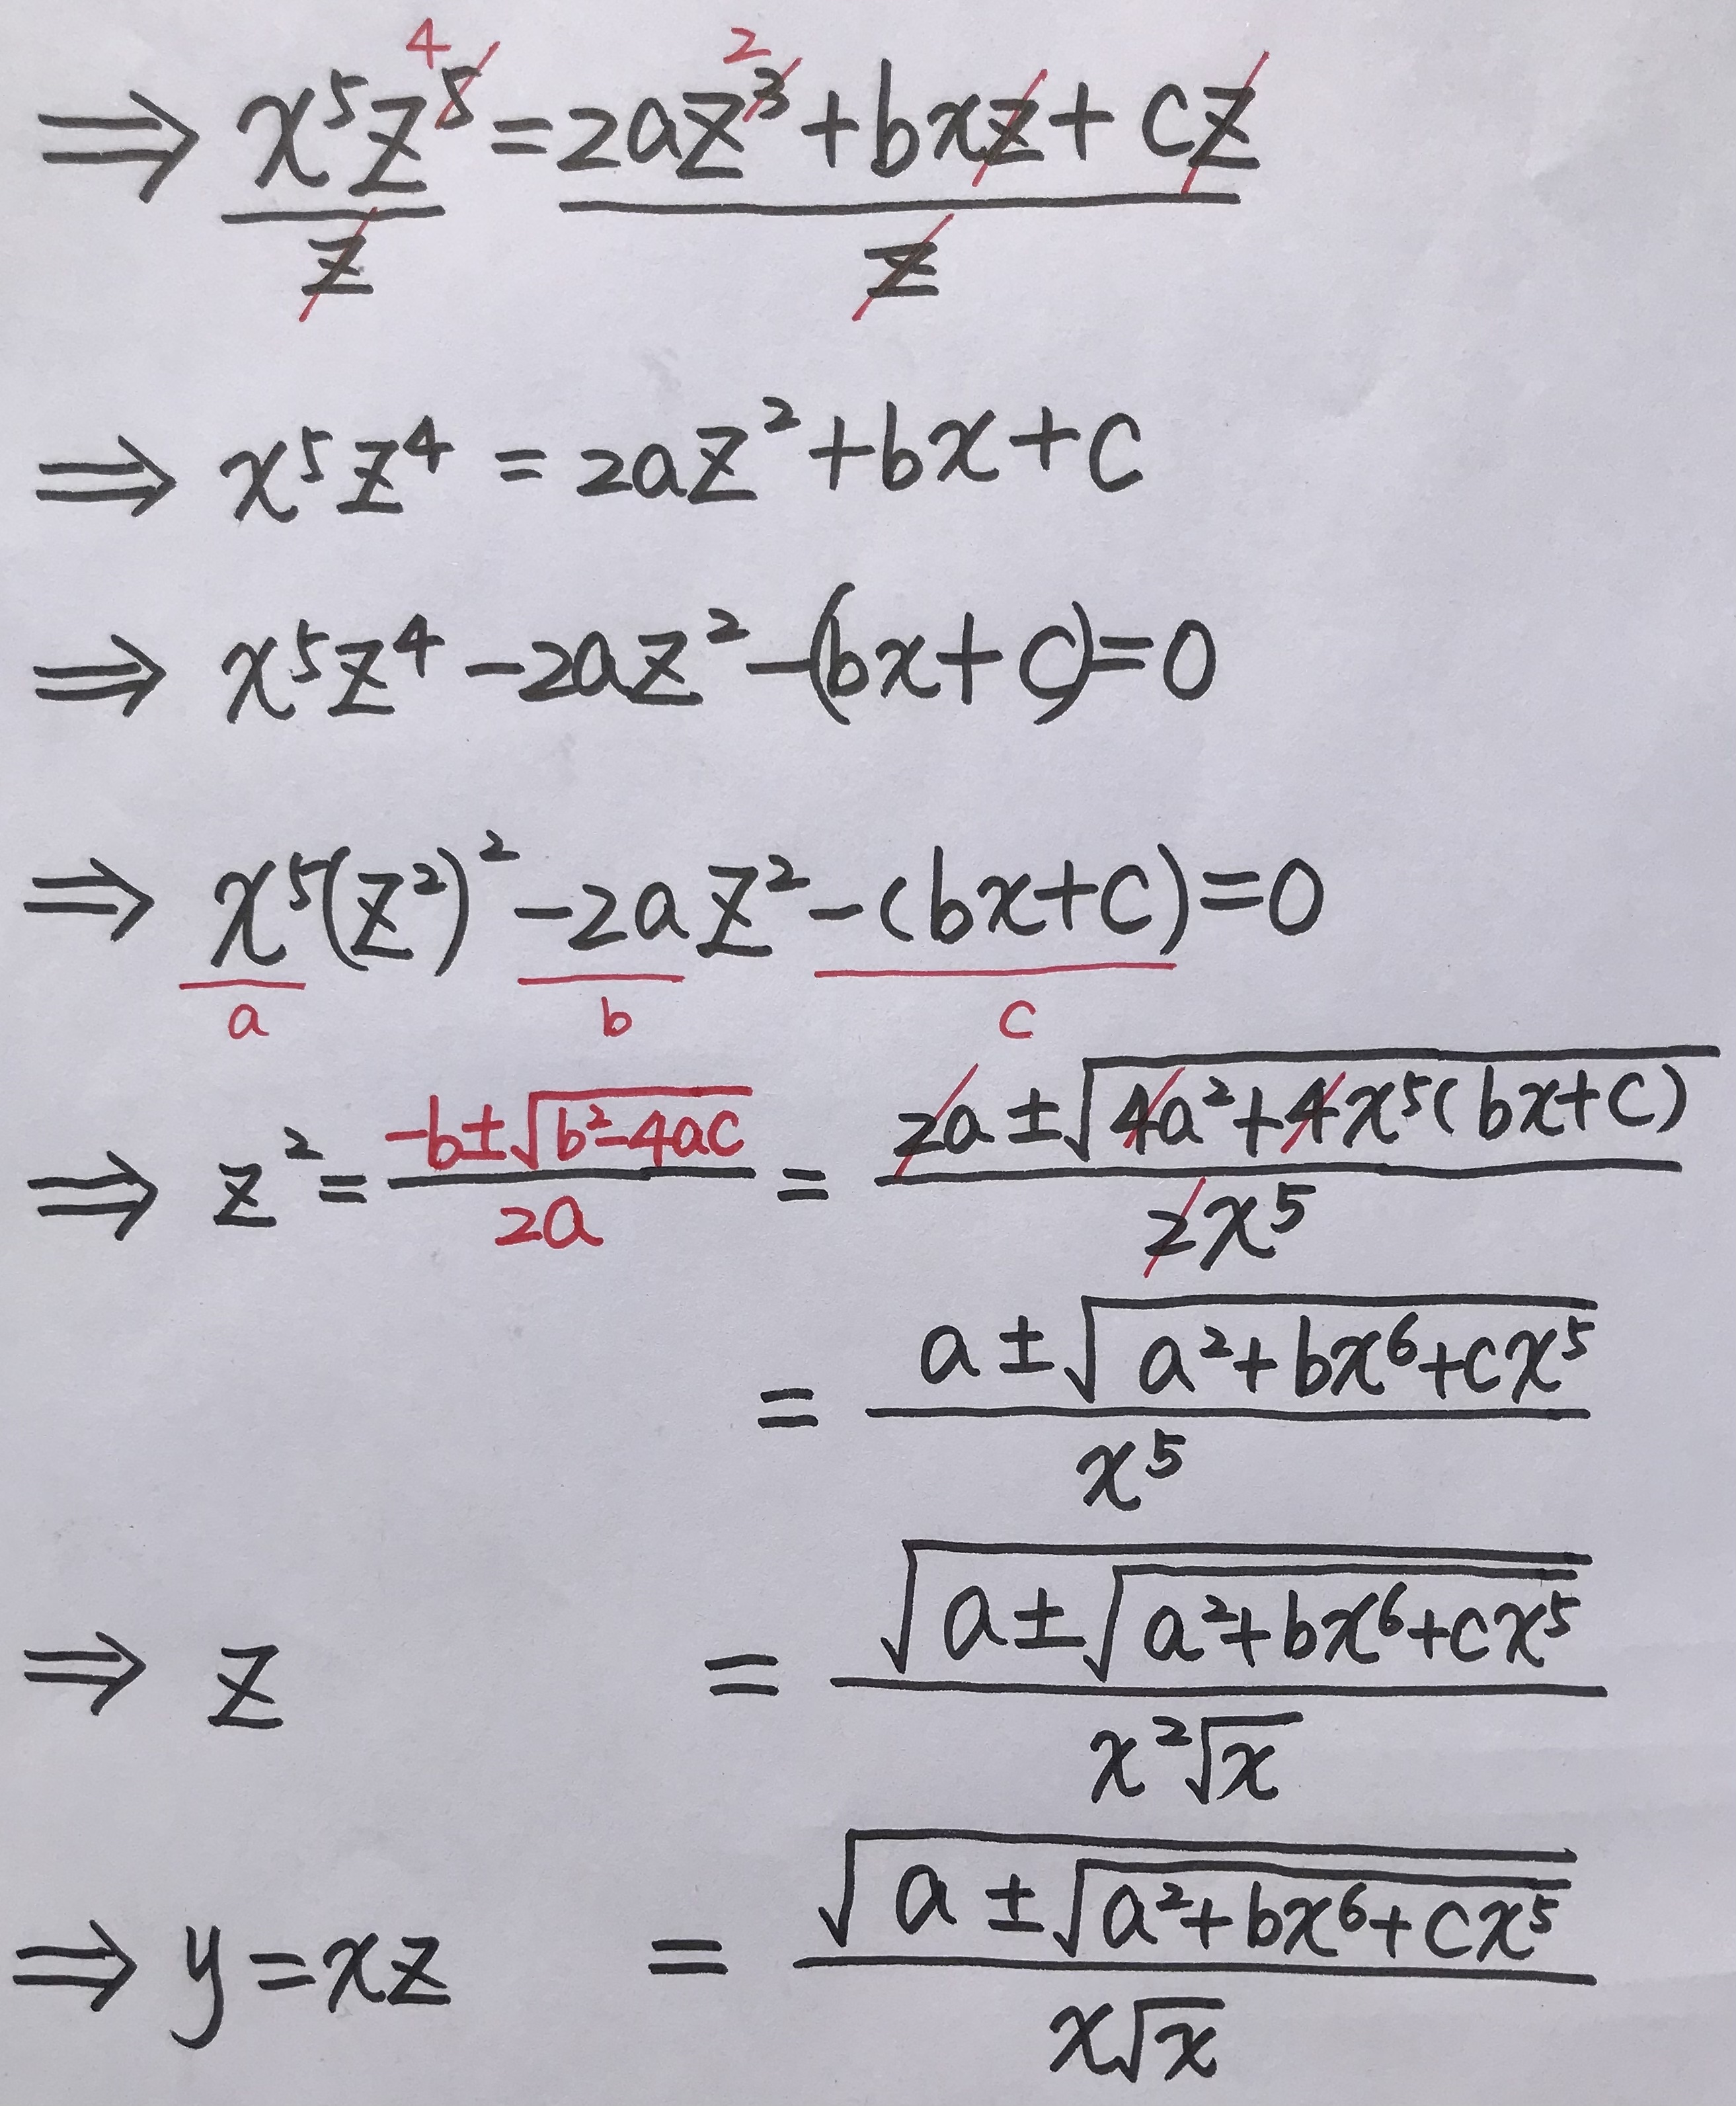 ⇒ x⁵z⁵ = 2az³ + bxz + cz
4 2
z z
⇒ x⁵z⁴ = 2az² + bx + c
⇒ x⁵z⁴ - 2az² - (bx + c) = 0
⇒ x⁵(z²)² - 2az² - (bx + c) = 0
a b c
⇒ z² = (-b ± √(b² - 4ac)) / 2a = (2a ± √(4a² + 4x⁵(bx + c))) / 2x⁵
= (a ± √(a² + bx⁶ + cx⁵)) / x⁵
⇒ z = √(a ± √(a² + bx⁶ + cx⁵)) / x²√x
⇒ y = xz = √(a ± √(a² + bx⁶ + cx⁵)) / x√x